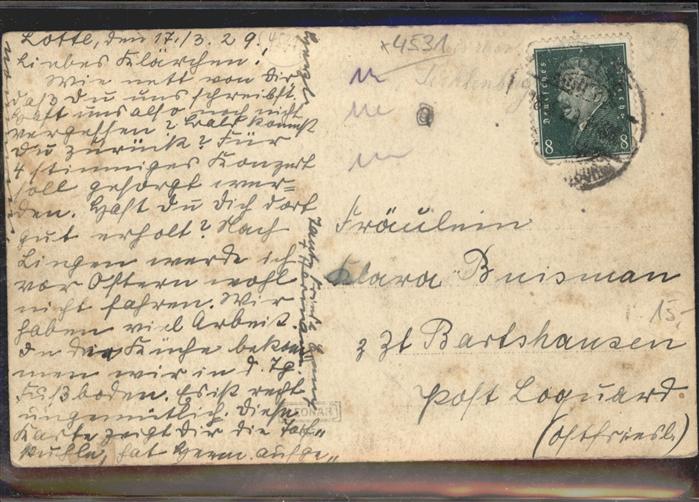 Lotte, den 17./3. 29.
Liebes Klärchen!
Wie nett von Dir
daß du uns schreibst.
Hast uns also noch nicht
vergessen? Bald kommst
Du zurück? Für
4 stimmiges Konzert
soll gesorgt wer=
den. Hast du Dich dort
gut erholt? Nach
Lingen werde ich
vor Ostern wohl
nicht fahren. Wir
haben viel Arbeit.
In die Küche bekom
men wir in d. Tg.
Fußboden. Es ist recht
ungemütlich. Diese
Karte zeigt Dir die
kuhle, hat Herm. aufge„
4531
Deutsches Reich
8 8
Fräulein
Klara Buisman
z Zt Bartshausen
Post Loquard
(Ostfriesl.)
15,-